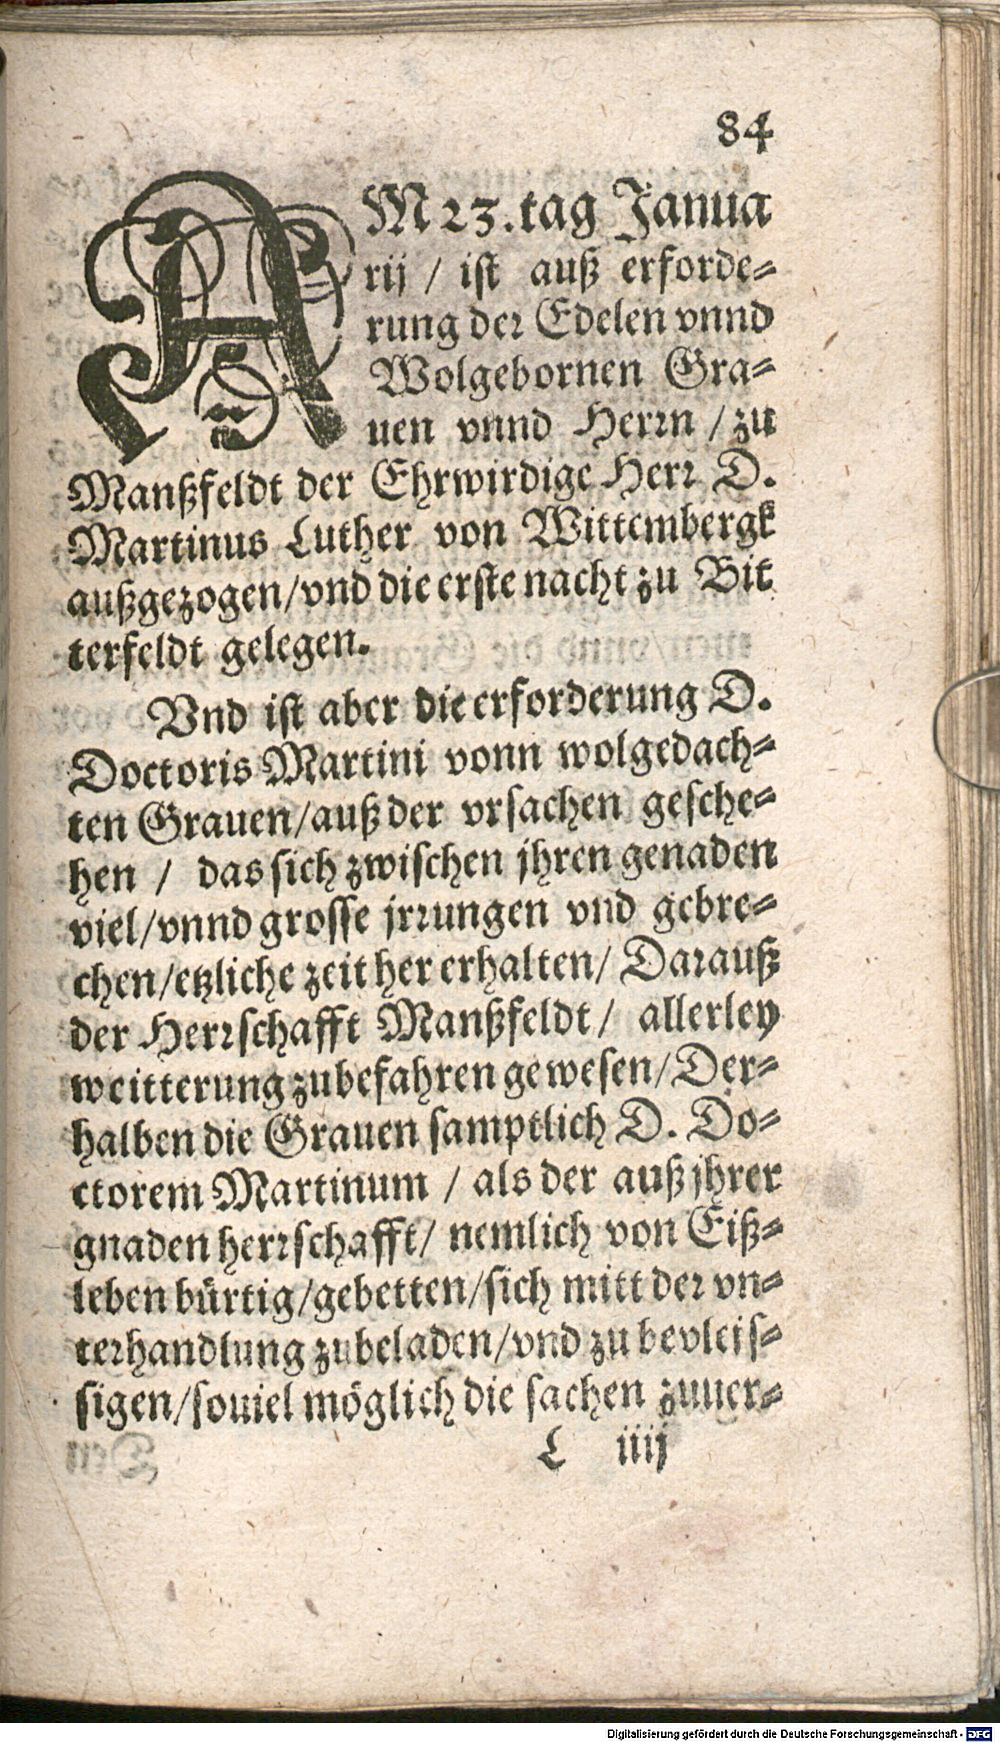 84
AM 23. tag Janua
rij / ist auß erforde-
rung der Edelen vnnd
Wolgebornen Gra-
uen vnnd Herrn / zu
Manßfeldt der Ehrwirdige Herr D.
Martinus Luther von Wittembergk
außgezogen / vnd die erste nacht zu Bit
terfeldt gelegen.
Vnd ist aber die erforderung D.
Doctoris Martini vonn wolgedach-
ten Grauen / auß der vrsachen gesche-
hen / das sich zwischen jhren genaden
viel / vnnd grosse jrrungen vnd gebre-
chen / etzliche zeit her erhalten / Darauß
der Herrschafft Manßfeldt / allerley
weitterung zubefahren gewesen / Der-
halben die Grauen samptlich D. Do-
ctorem Martinum / als der auß jhrer
gnaden herrschafft / nemlich von Eiß-
leben bürtig / gebetten / sich mitt der vn-
terhandlung zubeladen / vnd zu bevleis-
sigen / souiel möglich die sachen zuuer-
L iiij
Digitalisierung gefördert durch die Deutsche Forschungsgemeinschaft - DFG